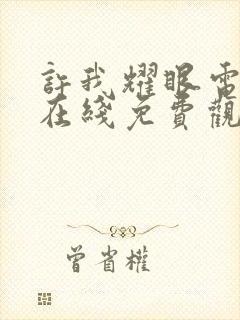 許我耀眼電
在綫免費觀
曾省權